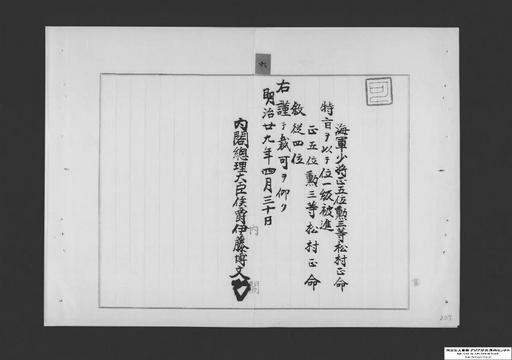 海軍少将正五位勲三等松村正命
特旨ヲ以テ位一級被進
正五位勲三等松村正命
叙従四位
右謹テ裁可ヲ仰ク
明治廿九年四月三十日
内閣總理大臣侯爵伊藤博文
内閣